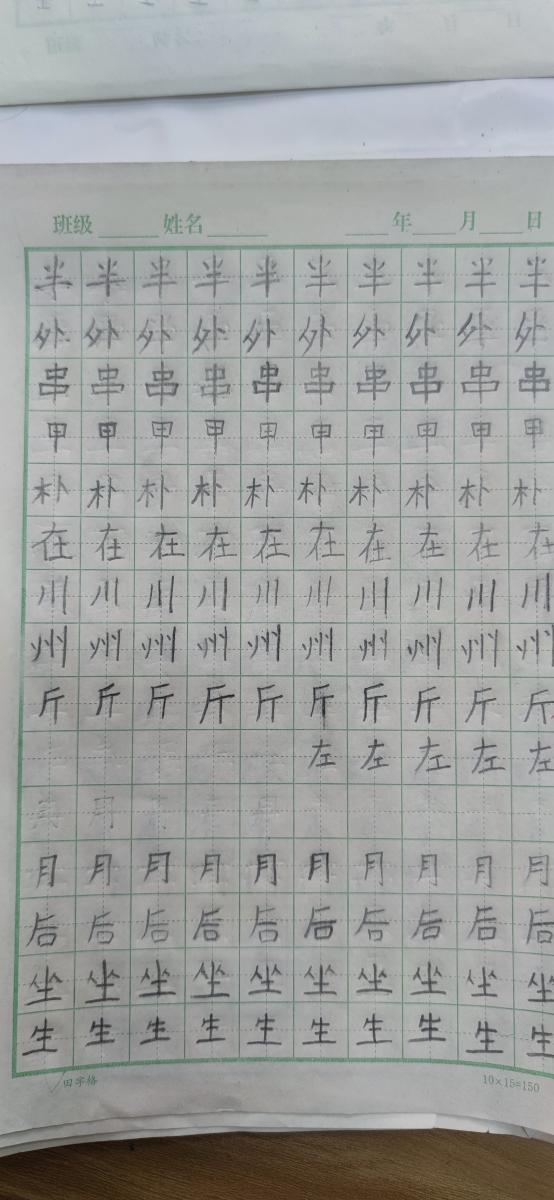 班级 姓名 年 月 日
半 半 半 半 半 半 半 半 半 半
外 外 外 外 外 外 外 外 外 外
串 串 串 串 串 串 串 串 串 串
甲 甲 甲 甲 甲 甲 甲 甲 甲 甲
朴 朴 朴 朴 朴 朴 朴 朴 朴 朴
在 在 在 在 在 在 在 在 在 在
川 川 川 川 川 川 川 川 川 川
州 州 州 州 州 州 州 州 州 州
斤 斤 斤 斤 斤 斤 斤 斤 斤 斤
左 左 左 左 左
月 月 月 月 月 月 月 月 月 月
后 后 后 后 后 后 后 后 后 后
坐 坐 坐 坐 坐 坐 坐 坐 坐 坐
生 生 生 生 生 生 生 生 生 生
田字格 10×15=150